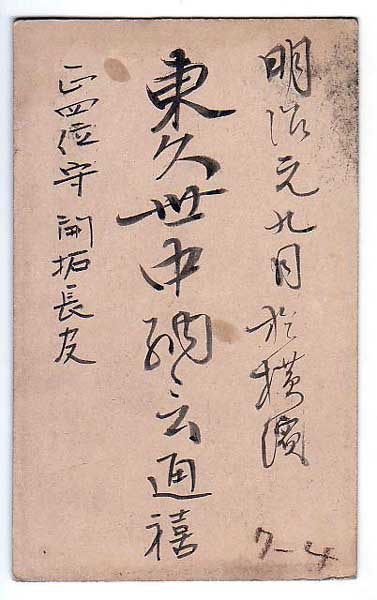 明治元九月於横濱
東久世中納言通禧
正四位守開拓長官
7-4